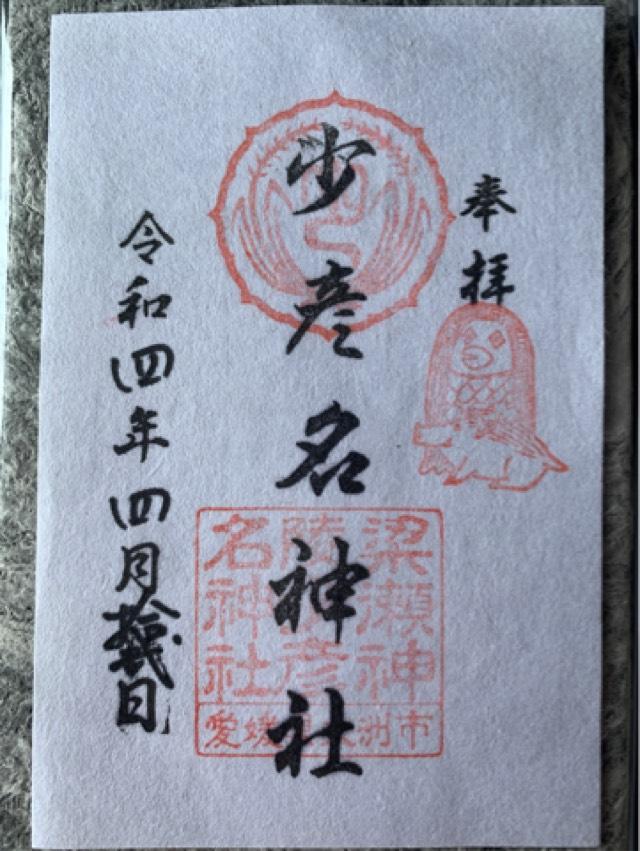 奉拝
少彦名神社
令和四年四月 日
梁瀬神
彦
名神社
愛媛県大洲市